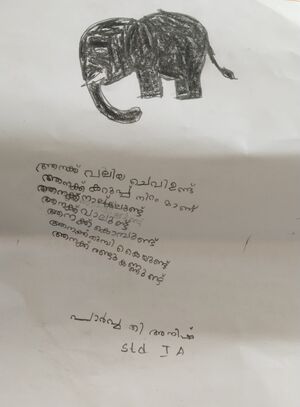 ആനക്ക് വലിയ ചെവി ഉണ്ട്
ആനക്ക് കറുപ്പ് നിറം മാണ്
ആനക്ക് നാല് കാലുണ്ട്
ആനക്ക് വാലുണ്ട്
ആനക്ക് കൊമ്പുണ്ട്
ആനക്ക് തുമ്പി കൈയുണ്ട്
ആനക്ക് രണ്ടു കണ്ണുണ്ട്
പാർവ്വതി അനിൽ
Std I A